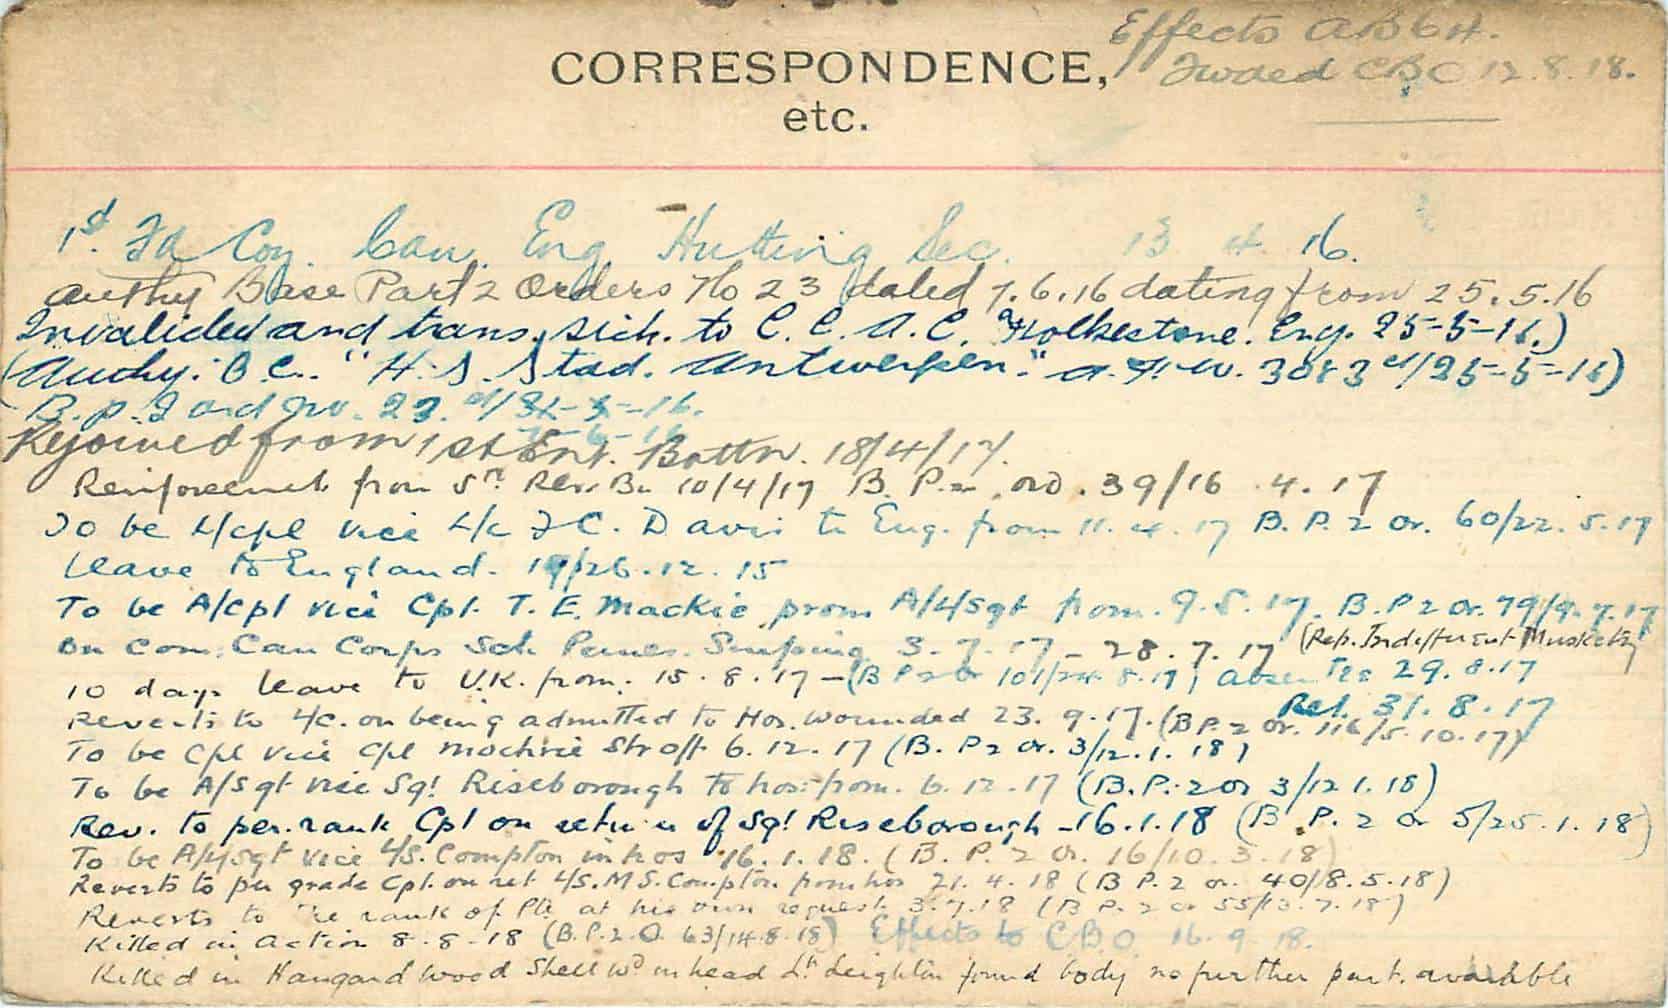 Effects AB64.
CORRESPONDENCE,
Fwded CBO 12.8.18.
etc.
1st. Fd Coy. Can. Eng. Hutting Sec. 13 4. 16.
Authy Base Part 2 Orders No 23 dated 7.6.16 dating from 25.5.16
Invalided and trans. sick. to C.C.A.C. Folkestone. Eng. 25-5-16.)
(Authy: O.C. "H.S. Stad. Antwerpen". A.F.W. 3083 d/25-5-16)
B.p.2 ord No. 23.
Rejoined from 1st Ent. Battn. 18/4/17.
Reinforcement from 5th Res. Bn 10/4/17 B.P.2 ord. 39/16.4.17
To be L/cpl vice L/c F C. Davis to Eng. from 11.4.17 B.P.2 or. 60/22.5.17
Leave to England. 19/26.12.15
To be A/cpl vice Cpl. T. E. Mackie prom A/L/Sgt from. 9.5.17. B.P2 or. 79/9.7.17
On Com. Can Corps Sch. Sniping 3.7.17 - 28.7.17 (Rep. Indifferent Musketry
10 days leave to U.K. from. 15.8.17 - (B P 2 or 101/24.8.17) Absentee 29.8.17
Ret. 31.8.17
Reverts to L/c. on being admitted to Hos. wounded 23.9.17. (B P.2 or. 116/5.10.17)
To be Cpl vice Cpl Mochrie str off 6.12.17 (B.P2 or. 3/12.1.18)
To be A/Sgt vice Sgt Riseborough to hos: from. 6.12.17 (B.P.2 or 3/12 1.18)
Rev. to per. rank Cpl on return of Sgt Riseborough - 16.1.18 (B.P.2 or 5/25.1.18)
To be A/L/Sgt vice L/S. Compton in hos 16.1.18. (B.P.2 or. 16/10.3.18)
Reverts to per grade Cpl. on ret L/S. M S. Compton from hos 21.4.18 (B P.2 or. 40/8.5.18)
Reverts to the rank of Pte at his own request 3.7.18 (B P.2 or 55/13.7.18)
Killed in Action 8-8-18 (B.P.2.O. 63/14.8.18) Effects to C.B.O. 16.9.18.
Killed in Hangard Wood Shell Wd in head Lt. Leightin found body no further part. available